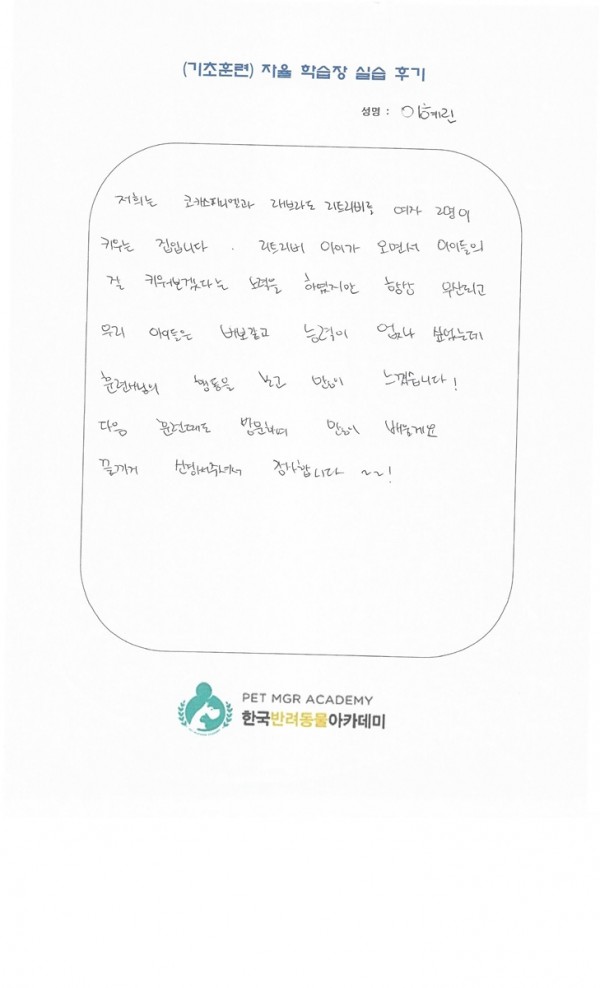 (기초훈련) 자율 학습장 실습 후기
성명 : 이혜린
저희는 코카스파니엘과 래브라도 리트리버를 여자 2명이
키우는 집입니다. 리트리버 아이가 오면서 아이들의
걸 키워보겠다는 노력을 하였지만 항상 무산되고
우리 아이들은 바보같고 능력이 없나 싶었는데
훈련사님의 행동을 보고 많이 느꼈습니다!
다음 훈련때도 방문하여 많이 배울게요
끝까지 신경써주셔서 감사합니다 ~~!
PET MGR ACADEMY
한국반려동물아카데미